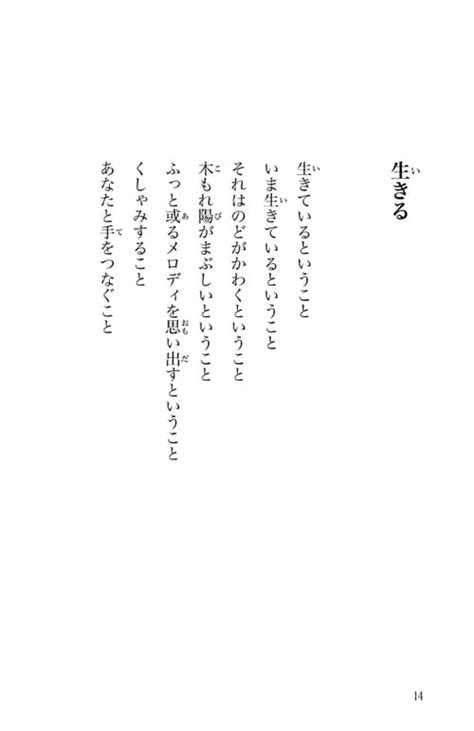 生きる
生きているということ
いま生きているということ
それはのどがかわくということ
木もれ陽がまぶしいということ
ふっと或るメロディを思い出すということ
くしゃみすること
あなたと手をつなぐこと
14